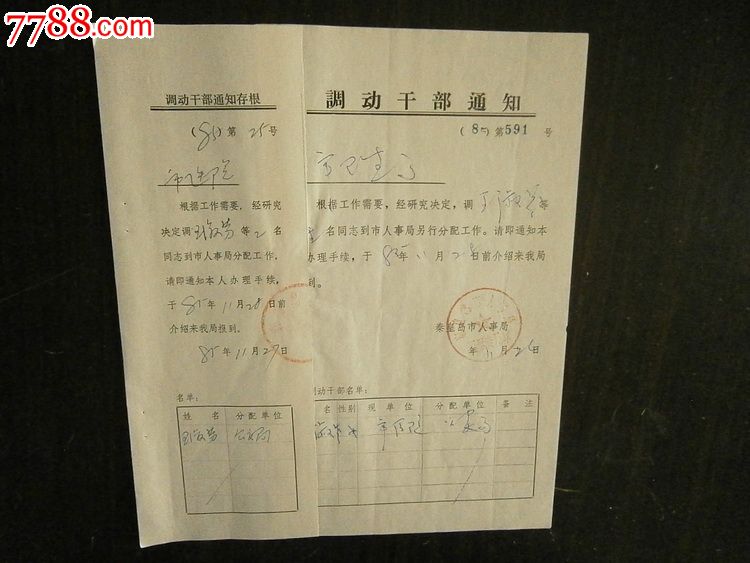 7788.com
调动干部通知存根
(85)第25号
市医院
根据工作需要,经研究
决定调 等2名
同志到市人事局分配工作,
请即通知本人办理手续,
于85年11月28日前
介绍来我局报到。
85年11月27日
名单:
姓名 分配单位
調动干部通知
(85)第591号
市卫生局
根据工作需要,经研究决定,调 等
名同志到市人事局另行分配工作。请即通知本
办理手续,于85年11月28日前介绍来我局
到。
秦皇岛市人事局
年11月26日
调动干部名单:
名 性别 现单位 分配单位 备注
女 市医院